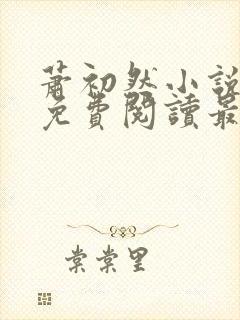 蕭初然小說
免費閱讀最
棠棠里